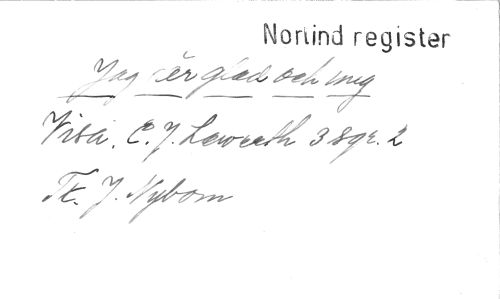 Norlind register
Jag är glad och ung
Visa. C. J. Lewerth 3 sgr. 2
Tx. J. Nybom